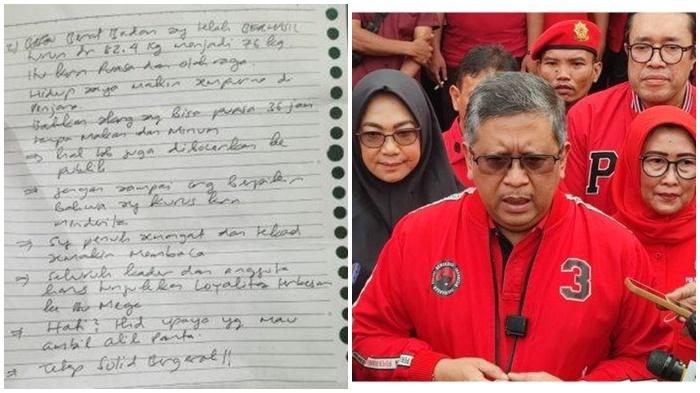 2) Berat Badan sy telah BERHASIL
turun dr 82.4 Kg menjadi 76 kg.
Itu krn Puasa dan olah raga.
Hidup saya makin sempurna di
Penjara.
Bahkan skrang sy bisa puasa 36 jam
tanpa Makan dan Minum
⇒ hal tsb juga dibocorkan ke
publik
⇒ Jangan sampai org berpikir
bahwa sy kurus krn
menderita
⇒ Sy penuh semangat dan tekad
semakin Membaca
⇒ Seluruh kader dan anggota
harus tunjukkan Loyalitas
ke Bu Mega
⇒ Hati² thd upaya yg mau
ambil alih Partai.
⇒ Tetap Solid Bergerak!!
3
P